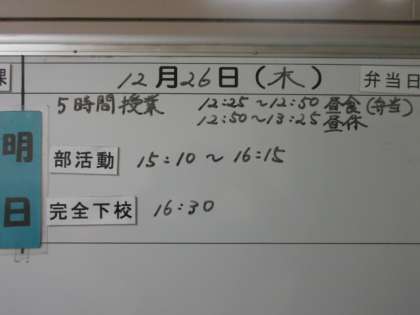 課 12月26日(木) 弁当日
5時間授業 12:25〜12:50 昼食(弁当)
12:50〜13:25 昼休
明日
部活動 15:10〜16:15
完全下校 16:30